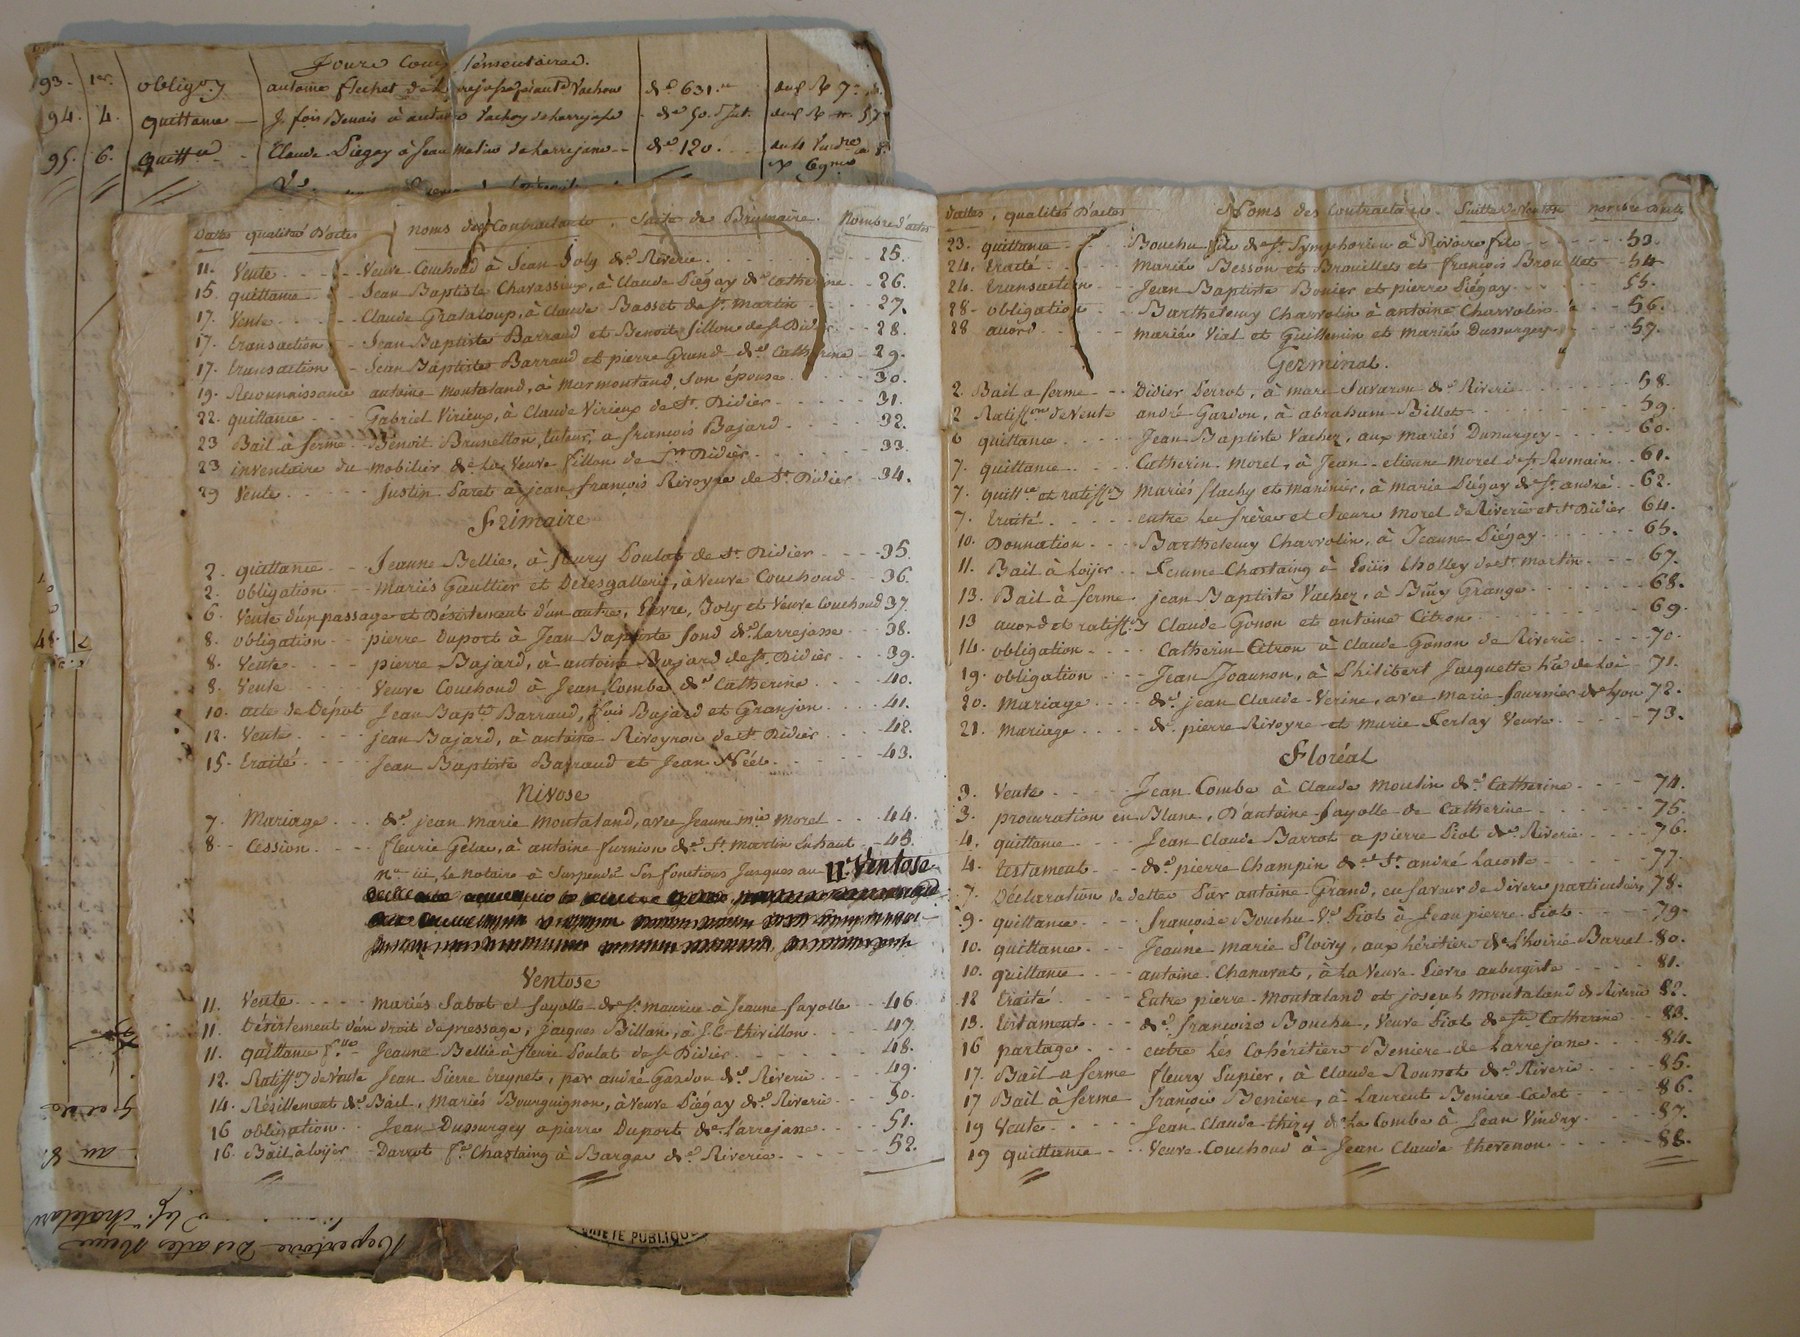 Jours Complémentaires.
93. 1er. obligon antoine flechet de Larrajasse à ant. Vachon de 631.
94. 4. quittance J. fois Benais à antoine Vachon de Larrajasse de 50.
95. 6. quittce Claude Piégay à Jean de Larrejasse de 120.
Dattes qualités d'actes noms des Contractants. Suite de Brumaire. Nombre d'actes
11. Vente Veuve Couchoud à Jean Joly de Riverie 25.
15. quittance Jean Baptiste Chavassieux, à Claude Piégay de Ste Catherine 26.
17. Vente Claude Grataloup, à Claude Basset de St. Martin 27.
17. transaction Jean Baptiste Barraud et Benoite fillon de St. Didier 28.
17. transaction Jean Baptiste Barraud et pierre Grand de Ste Catherine 29.
19. Reconnaissance antoine Montaland, à Mar Montaland, son épouse 30.
22. quittance Gabriel Virieux, à Claude Virieux de St. Didier 31.
23 Bail à ferme Benoit Brunetton, tuteur, à françois Bajard 32.
23 inventaire du mobilier de la Veuve fillon de St. Didier 33.
29 Vente Justin Paret à jean françois Rivoyre de St Didier 34.
Frimaire
2. quittance Jeanne Bellie, à fleury Poulat de St. Didier 35.
2. obligation Mariés Gaultier et Delesgallerie, à Veuve Couchoud 36.
6 Vente d'un passage et Désistement d'un autre, Favre, Joly et Veuve Couchoud 37.
8. obligation pierre Duport à Jean Baptiste fond de Larrejasse 38.
8. Vente pierre Bajard, à antoine Bajard de St. Didier 39.
8. Vente Veuve Couchoud à Jean Combe de Ste Catherine 40.
10. acte de Dépot Jean Bapte Barraud, fois Bajard et Granjon 41.
12. Vente jean Bajard, à antoine Rivoyron de St Didier 42.
15. traité Jean Baptiste Barraud et Jean Néel 43.
Nivose
7. Mariage de jean Marie Montaland, avec Jeanne Mie Morel 44.
8. Cession fleurie Gelas, à antoine furnion de St. Martin en haut 45.
Na ici le Notaire à Suspendu Ses fonctions Jusques au 11. Ventose
Ventose
11. Vente Mariés Sabot et fayolle de St. Maurice à Jeanne fayolle 46.
11. Désistement d'un droit de pressage, Jacques Billan, à J. C. thivillon 47.
11. quittance Jeanne Bellie à fleurie Poulat de St Didier 48.
12. Ratiffon de Vente Jean Pierre Creynet, par andré Gardon de Riverie 49.
14. Résillement de Bail, Mariés Bourguignon, à Veuve Piégay de Riverie 50.
16 obligation Jean Dussurgey a pierre Duport de Larrejasse 51.
16. Bail à loÿer Darrot fe Chastaing à Barge de Riverie 52.
Dattes, qualités d'actes Noms des Contractants. Suitte de Ventose nombre d'actes
23. quittance Bouchu fils de St. Symphorien à Rivoire fils 53.
24. traité Mariés Besson et Brouillet et françois Brouillet 54
24. transaction Jean Baptiste Bonier et pierre Piégay 55.
28. obligation Barthelemy Charvolin à antoine Charvolin 56.
28 acord Mariés Vial et Guillemin et Mariés Dussurgey 57.
Germinal.
2. Bail a ferme Didier Perrot, à marc Savaron de Riverie 58.
2 Ratiffon de Vente andré Gardon, à abraham Billet 59.
6 quittance Jean Baptiste Vachez, aux Mariés Dussurgey 60.
7. quittance Catherin Morel, à Jean etienne Morel de St Romain 61.
7. quittce et ratiffon Mariés flachy et Marinier, à Marie Piégay de St. andré 62.
7. traité entre les frères et Sœurs Morel de Riverie et St Didier 64.
10. Donnation Barthelemy Charvolin, à Jeanne Piégay 65.
11. Bail à loÿer femme Chastaing à Loüis Cholley de St martin 67.
13. Bail à ferme jean Baptiste Vachez, à Grange 68.
13 acord et ratiffon Claude Gonon et antoine Citron 69.
14. obligation Catherin Citron à Claude Gonon de Riverie 70.
19. obligation Jean Joannon, à Philibert Jacquette 71.
20. Mariage de jean Claude Verine, avec Marie fournier de Lyon 72.
21. Mariage de pierre Rivoyre et Marie Ferlay Veuve 73.
Floréal
3. Vente Jean Combe à Claude Moulin de Ste Catherine 74.
3. procuration en Blanc, d'antoine fayolle de Catherine 75.
4. quittance Jean Claude Barrot a pierre Piot de Riverie 76.
4. testament de pierre Champin de St. andré Lacoste 77.
7. Déclaration de dettes Par antoine Grand, en faveur de divers particuliers 78.
9. quittance françoise Bouchu Ve. Piot à Jean pierre Piot 79.
10. quittance Jeanne Marie Ploivy, aux héritiers de l'hoirie Barcel 80.
10. quittance antoine Chanavat, à la Veuve Pierre aubergiste 81.
12 traité Entre pierre Montaland et joseph Montaland de Riverie 82.
13. testament de françoise Bouchu, Veuve Piot de Ste Catherine 83.
16 partage entre les Cohéritiers Beniere de Larrejasse 84.
17. Bail a ferme fleury Pupier, à Claude Roussot de Riverie 85.
17 Bail à ferme françois Beniere, à Laurent Beniere Cadet 86.
19 Vente Jean Claude thizy de la Combe à Jean Vindry 87.
19 quittance Veuve Couchoud à Jean Claude thevenon 88.
PUBLIQUE
Repertoire Des actes